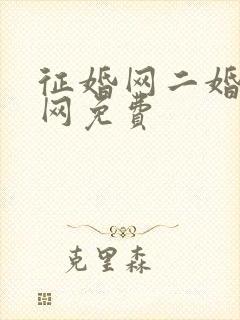 征婚网二婚
网免费
克里森